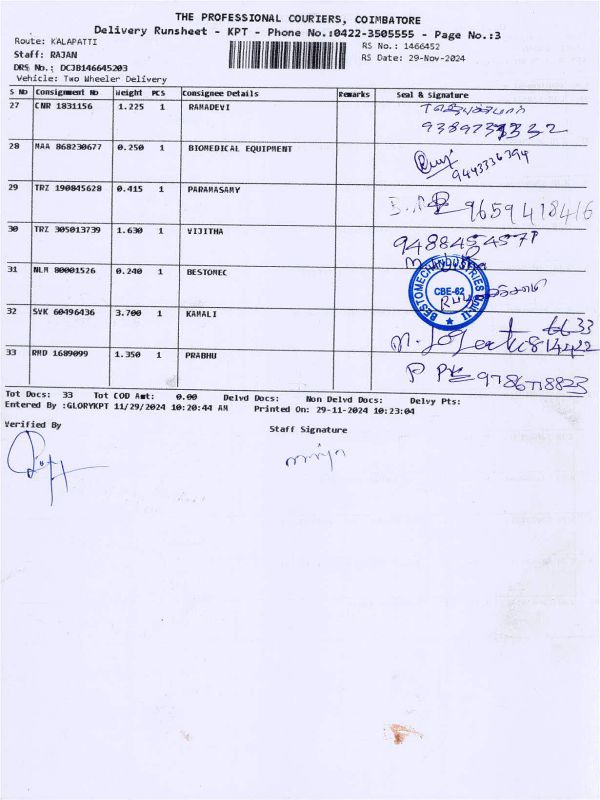 THE PROFESSIONAL COURIERS, COIMBATORE
Delivery Runsheet - KPT - Phone No.:0422-3505555 - Page No.:3
Route: KALAPATTI
RS No.: 1466452
Staff: RAJAN
RS Date: 29-Nov-2024
DRS No.: DCJB146645203
Vehicle: Two Wheeler Delivery
S No Consignment No Weight PCS Consignee Details Remarks Seal & Signature
27 CNR 1831156 1.225 1 RAMADEVI
28 MAA 868230677 0.250 1 BIOMEDICAL EQUIPMENT
9443336394
29 TRZ 190845628 0.415 1 PARAMASAMY
9659418416
30 TRZ 305013739 1.630 1 VIJITHA
31 NLM 80001526 0.240 1 BESTOMEC
BESTOMECH INDUSTRIES Unit-II
CBE-62
32 SVK 60496436 3.700 1 KAMALI
33 RMD 1689099 1.350 1 PRABHU
Tot Docs: 33 Tot COD Amt: 0.00 Delvd Docs: Non Delvd Docs: Delvy Pts:
Entered By :GLORYKPT 11/29/2024 10:20:44 AM Printed On: 29-11-2024 10:23:04
Verified By
Staff Signature